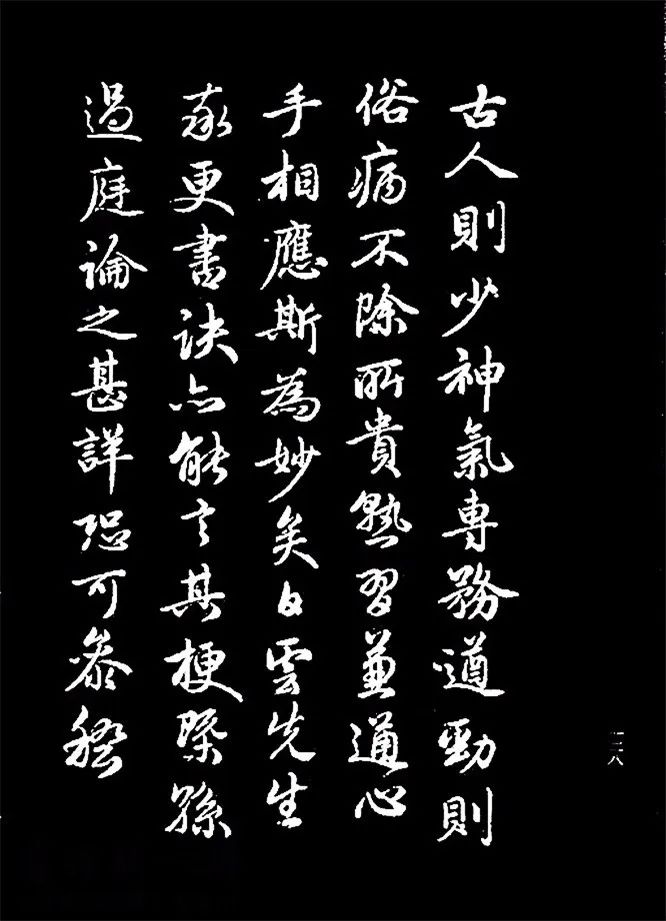 古人則少神氣專務遒勁則
俗病不除所貴熟習兼通心
手相應斯為妙矣白雲先生
更書訣亦能言其梗槩孫
過庭論之甚詳可參稽